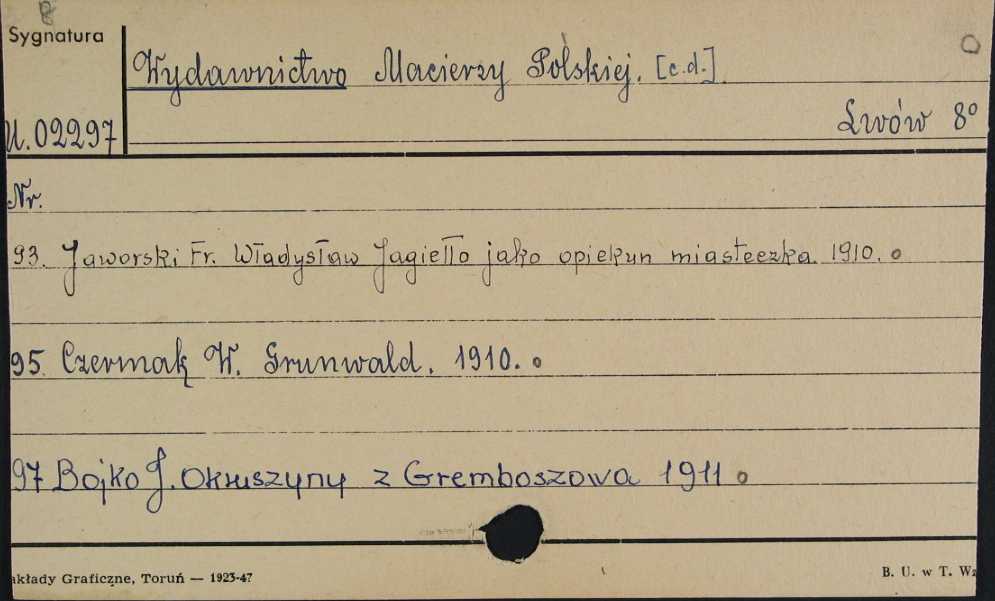 Sygnatura
Wydawnictwo Macierzy Polskiej. [c.d.]
U.02297
Lwów 8°
Nr.
93. Jaworski Fr. Władysław Jagiełło jako opiekun miasteczka. 1910.
95. Czermak W. Grunwald. 1910.
97 Bojko J. Okruszyny z Gremboszowa 1911
akłady Graficzne, Toruń — 1923-47
B. U. w T. Wz